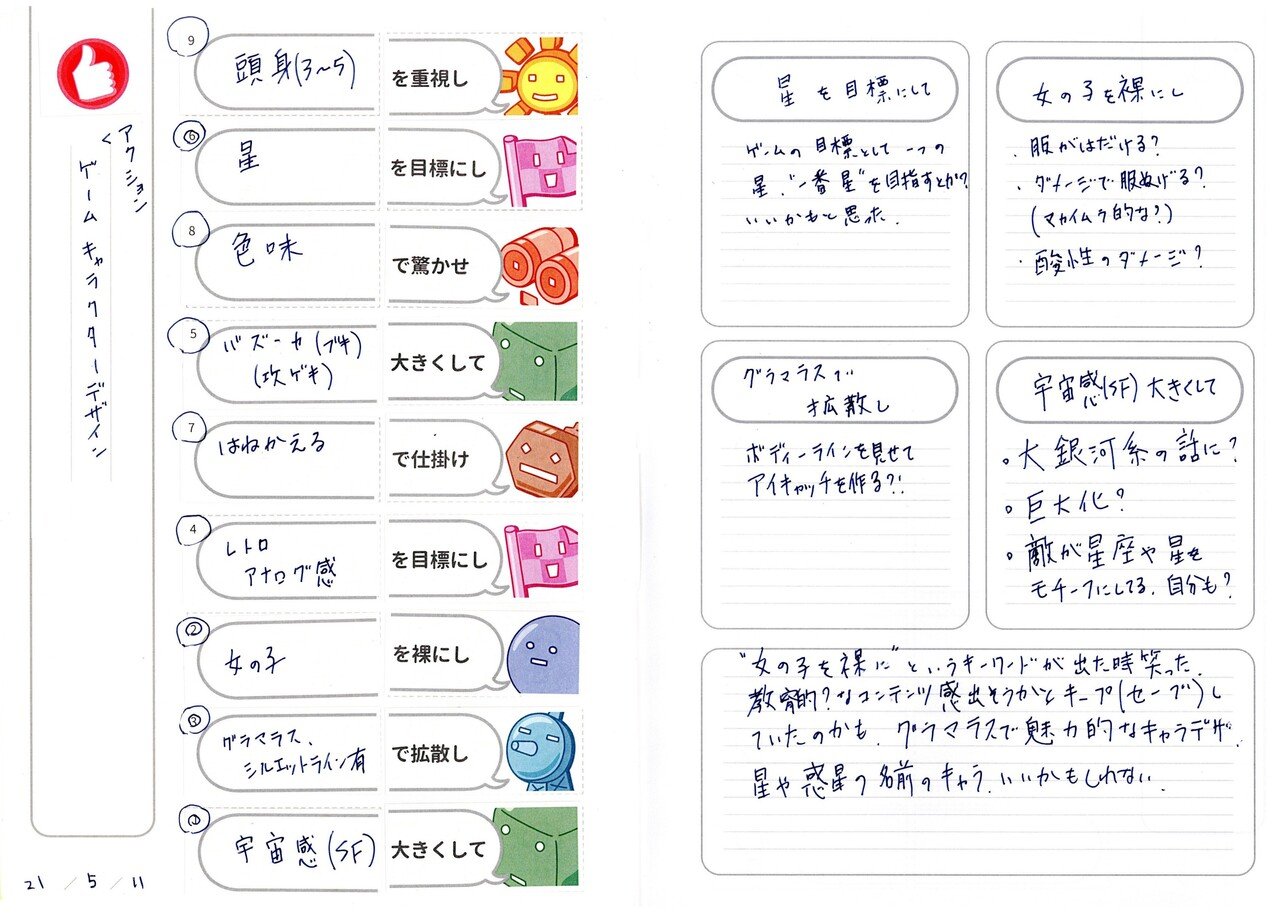 アクション
ゲームキャラクターデザイン
9
頭身(3〜5)
を重視し
6
星
を目標にし
8
色味
で驚かせ
5
バズーカ(ブキ)
(攻ゲキ)
大きくして
7
はねかえる
で仕掛け
4
レトロ
アナログ感
を目標にし
2
女の子
を裸にし
3
グラマラス、
シルエットライン有
で拡散し
1
宇宙感(SF)
大きくして
21/5/11
星を目標にして
ゲームの目標として一つの
星、"一番星"を目指すとか?
いいかもと思った.
女の子を裸にし
・服がはだける?
・ダメージで服ぬげる?
(マカイムラ的な?)
・酸性のダメージ?
グラマラスで
拡散し
ボディーラインを見せて
アイキャッチを作る?!
宇宙感(SF)大きくして
。大銀河系の話に?
。巨大化?
。敵が星座や星を
モチーフにしてる. 自分も?
"女の子を裸に"というキーワードが出た時笑った.
教育的?なコンテンツ感出そうかとキープ(セーブ)し
ていたのかも. グラマラスで魅力的なキャラデザ.
星や惑星の名前のキャラ. いいかもしれない.